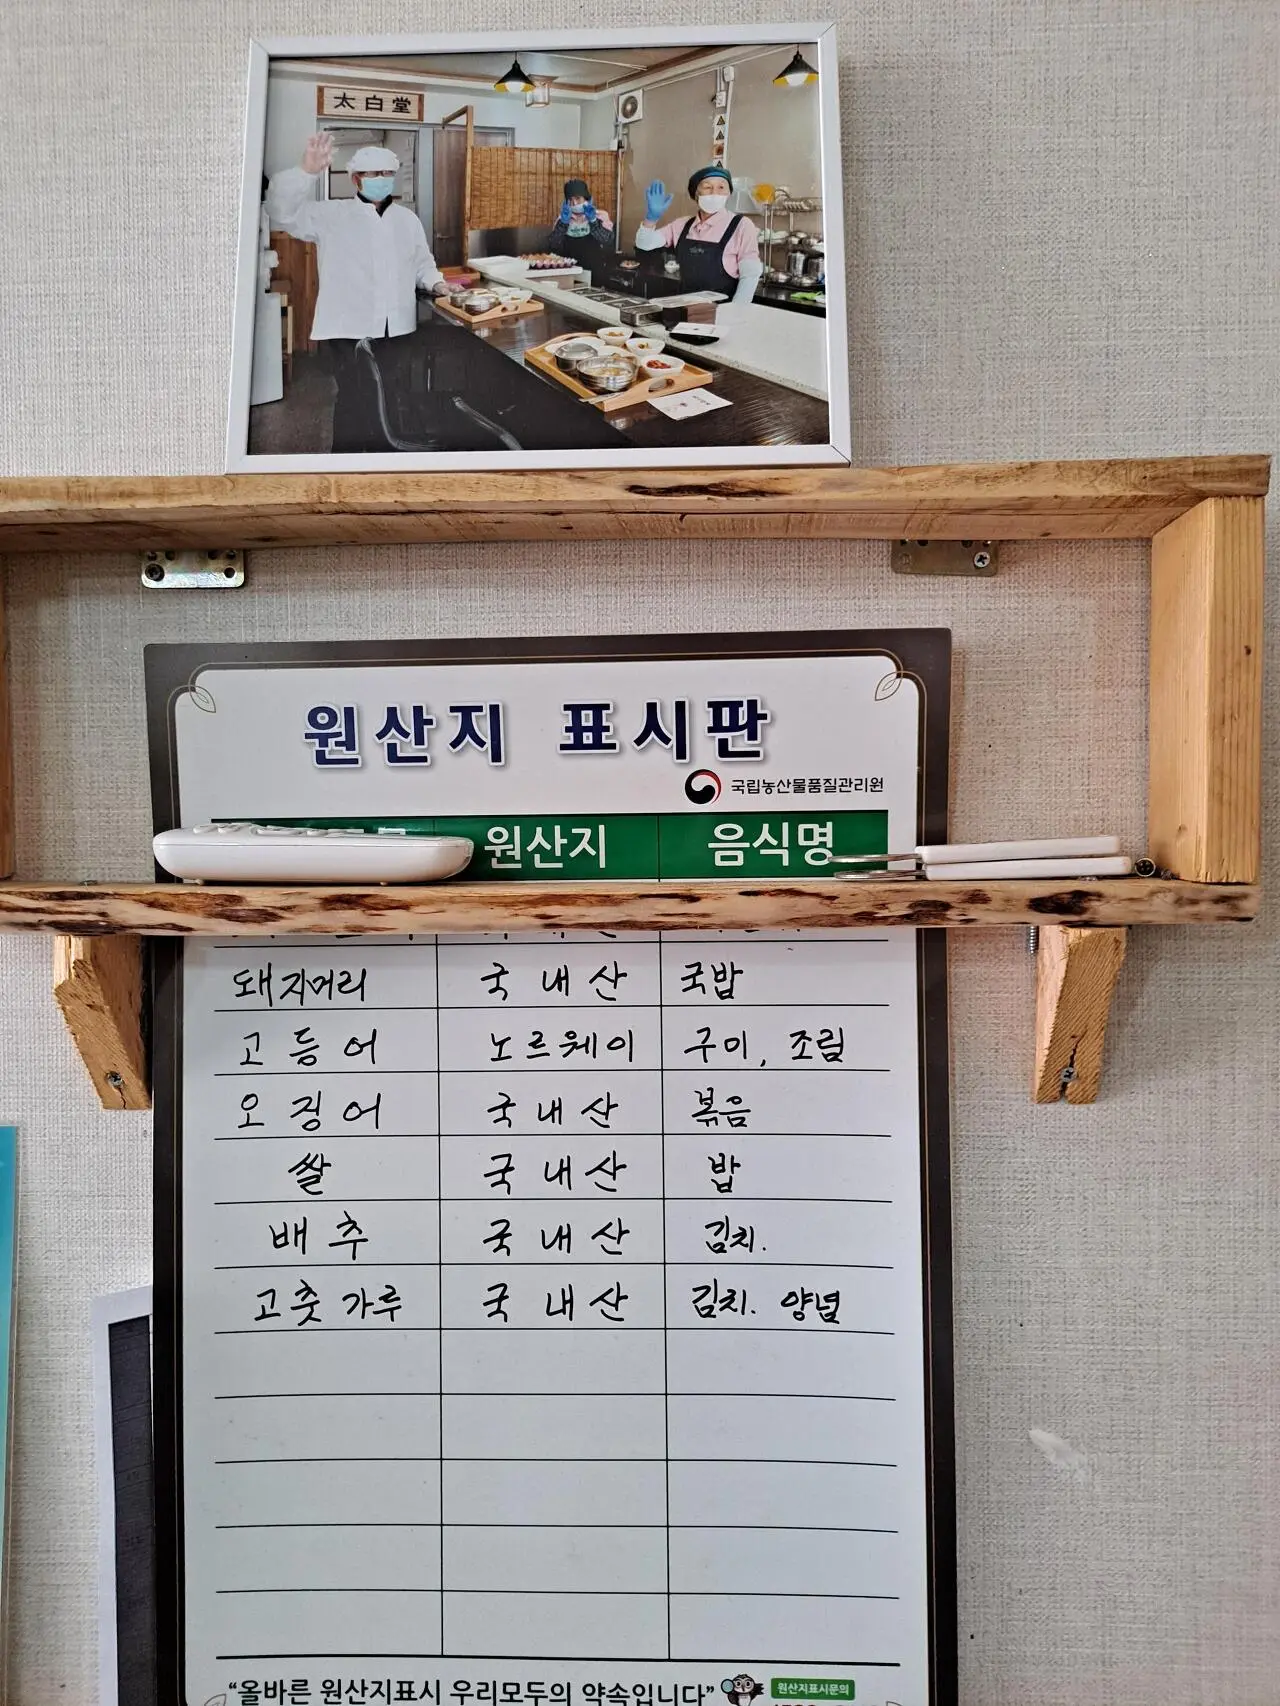 太白堂
원산지 표시판
국립농산물품질관리원
원산지 음식명
돼지머리 국내산 국밥
고등어 노르웨이 구이, 조림
오징어 국내산 볶음
쌀 국내산 밥
배추 국내산 김치.
고춧가루 국내산 김치. 양념
“올바른 원산지표시 우리모두의 약속입니다”
원산지표시문의